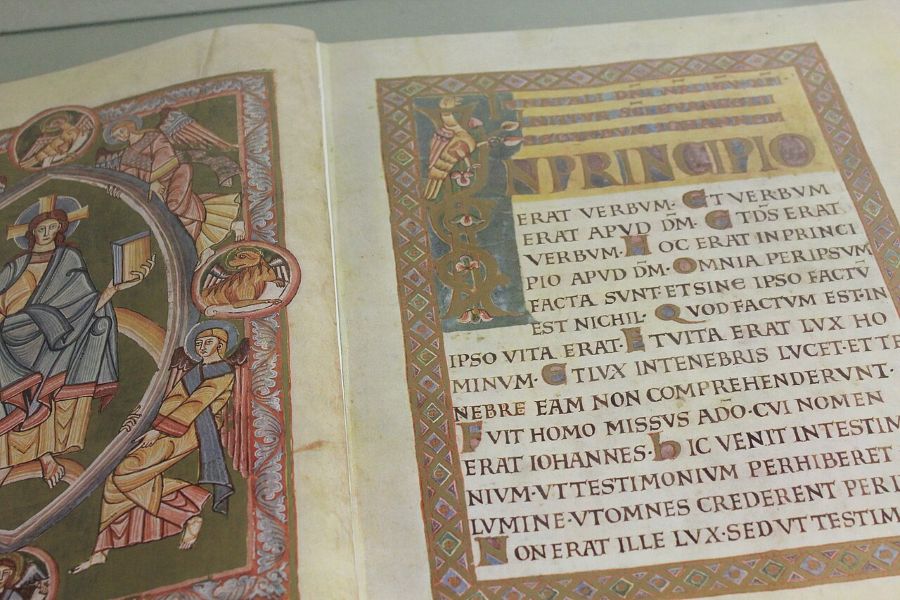 IN PRINCIPIO
ERAT VERBVM· ET VERBVM
ERAT APVD D̄M· ET D̄S ERAT
VERBVM· HOC ERAT IN PRINCI
PIO APVD D̄M· OMNIA PER IPSVM
FACTA SVNT· ET SINE IPSO FACTŪ
EST NICHIL· QVOD FACTVM EST· IN
IPSO VITA ERAT· ET VITA ERAT LVX HO
MINVM· ET LVX IN TENEBRIS LVCET· ET TE
NEBRE EAM NON COMPREHENDERVNT·
FVIT HOMO MISSVS A D̄O· CVI NOMEN
ERAT IOHANNES· HIC VENIT IN TESTIM
NIVM· VT TESTIMONIVM PERHIBERET
LVMINE· VT OMNES CREDERENT PER I
NON ERAT ILLE LVX· SED VT TESTIM